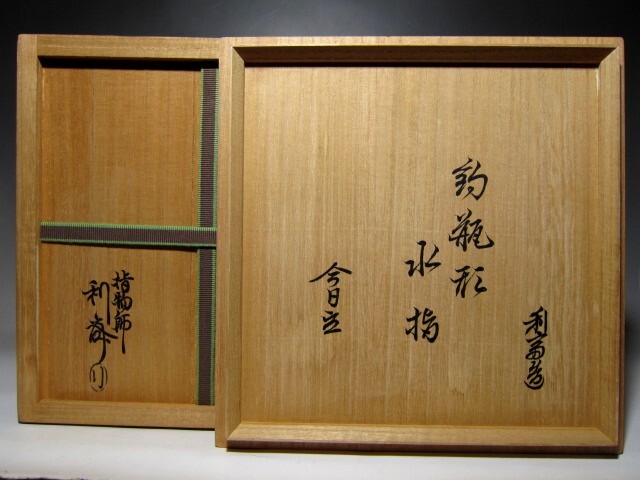 利斎造
釣瓶形
水指
今日立
指物師
利斎